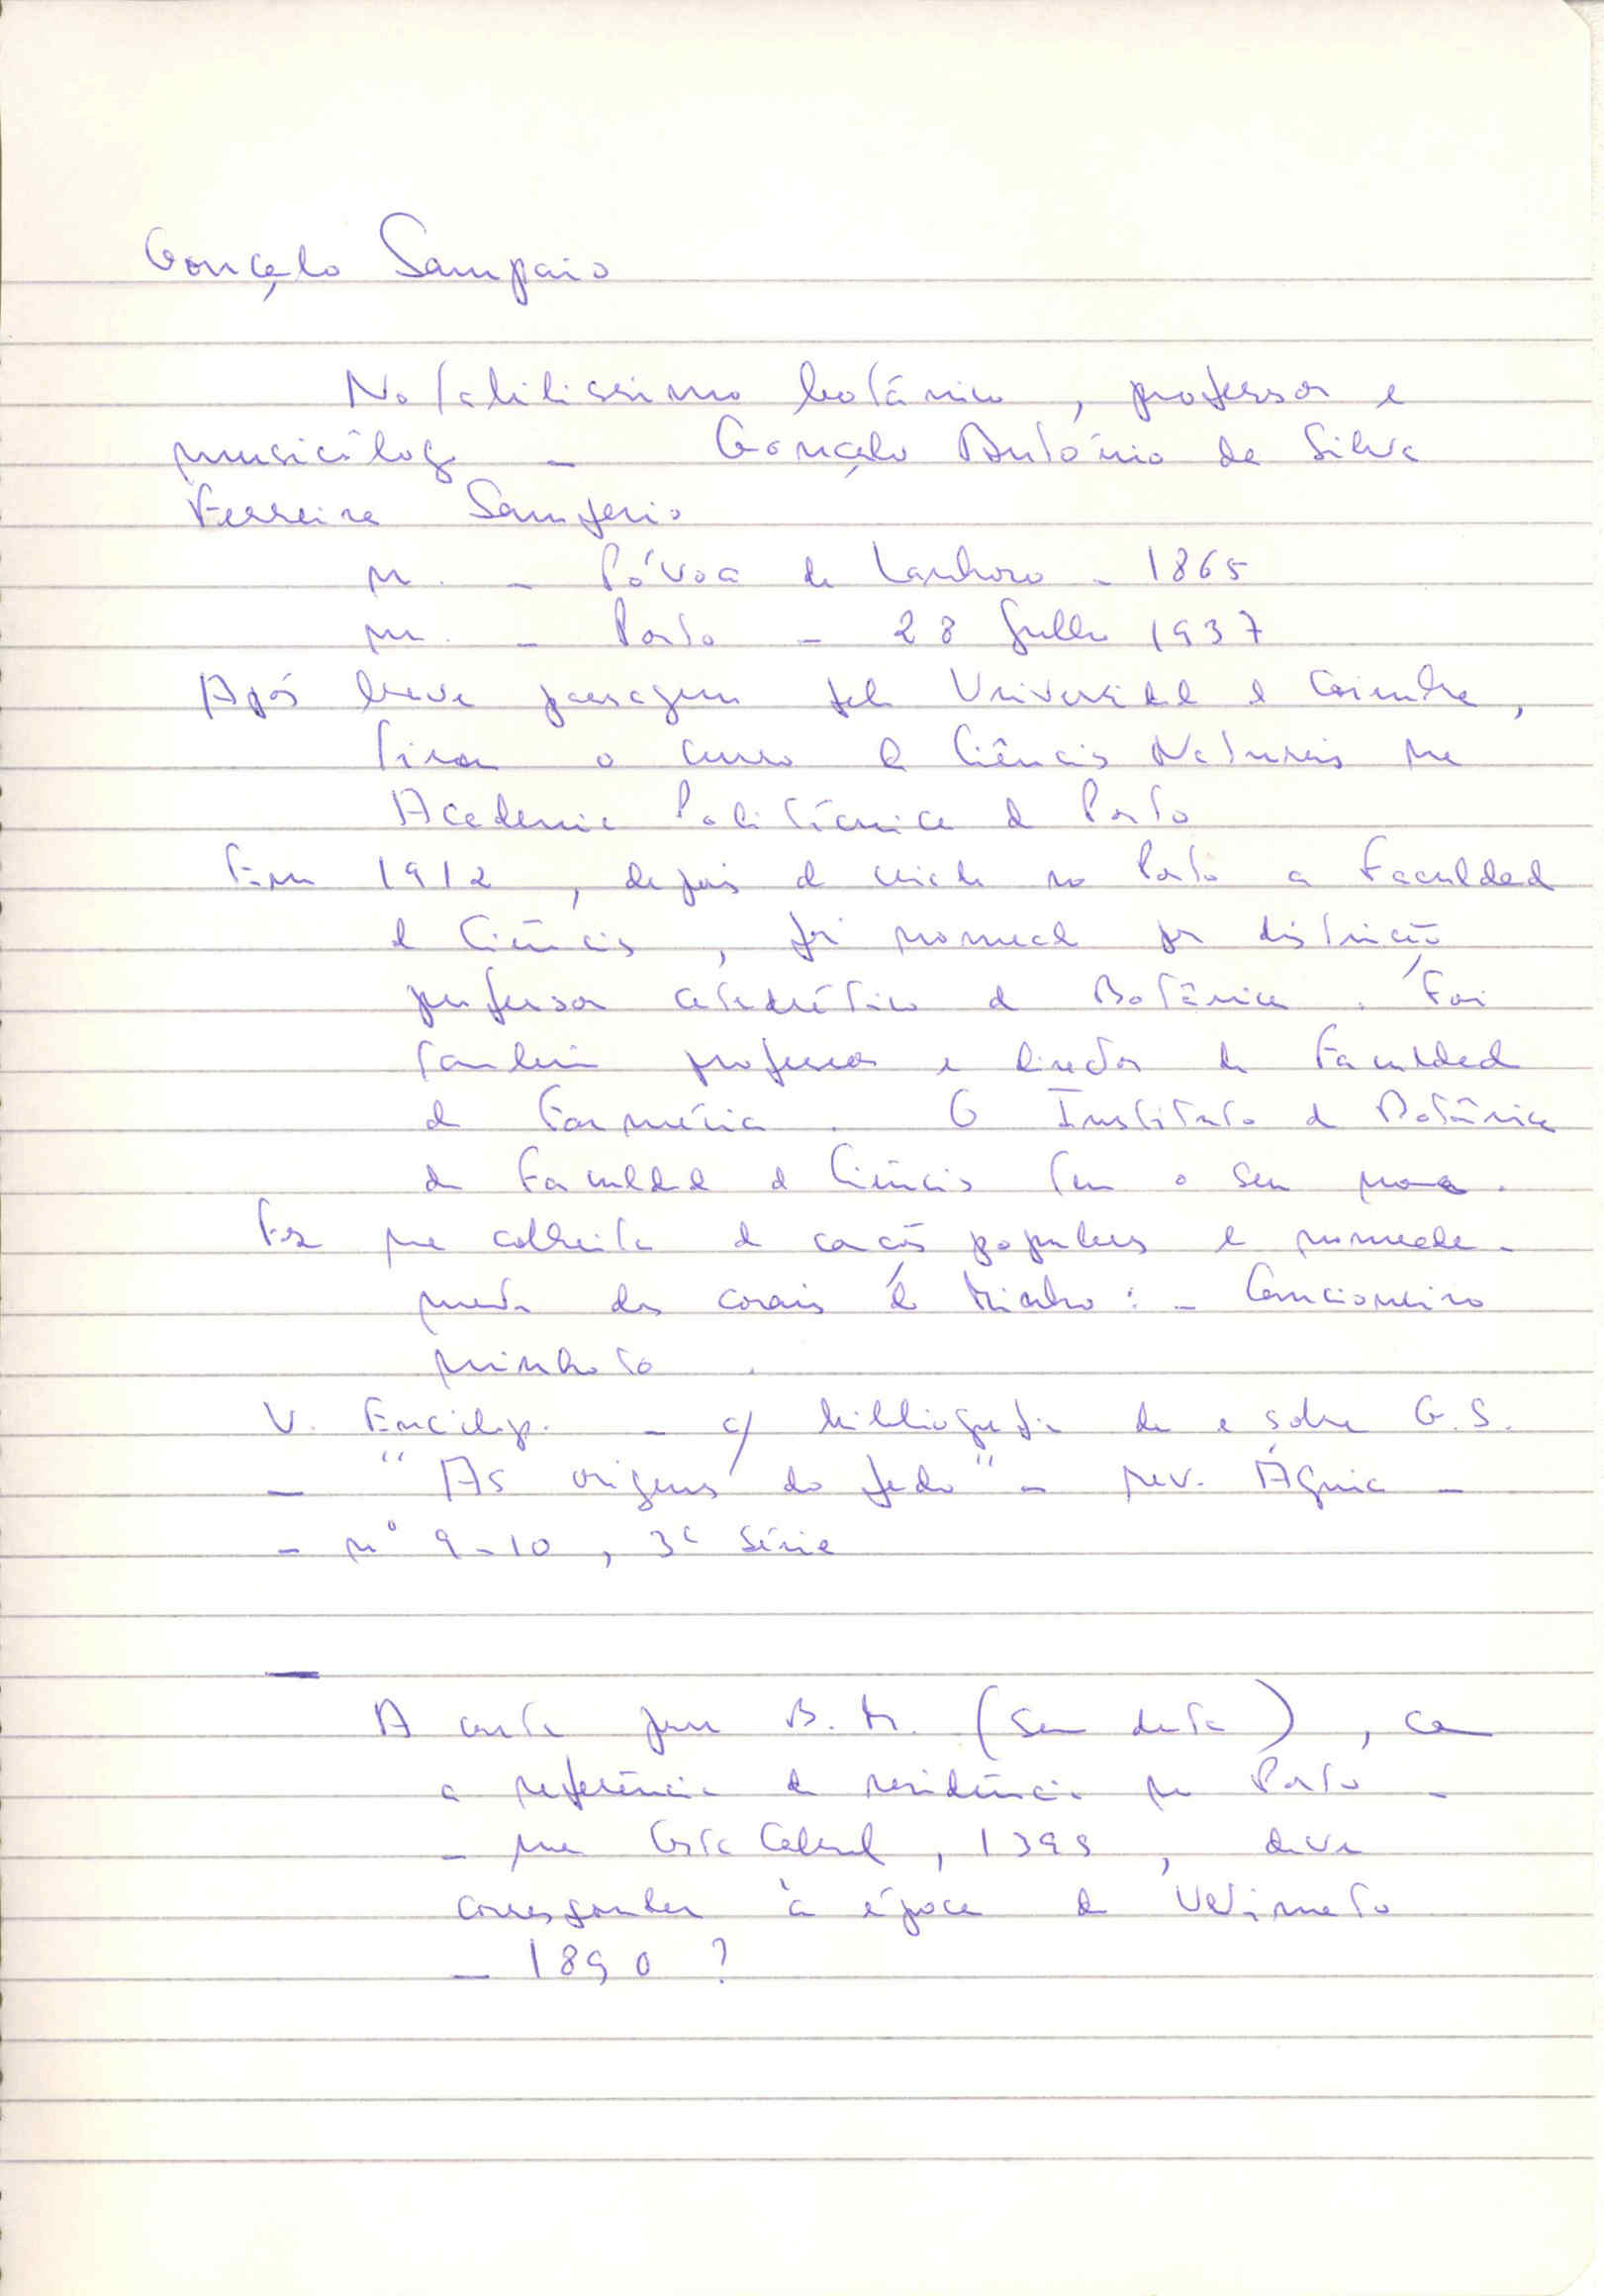 Gonçalo Sampaio
Notabilissimo botânico, professor e
musicólogo – Gonçalo António da Silva
Ferreira Sampaio
n. – Póvoa de Lanhoso – 1865
m. – Porto – 28 Julho 1937
Após breve passagem pela Universidade de Coimbra,
tirou o curso de Ciências Naturais na
Academia Politécnica do Porto
Em 1912, depois de criada no Porto a Faculdade
de Ciências, foi nomeado por distinção
professor catedrático de Botânica. Foi
também professor e director da Faculdade
de Farmácia. O Instituto de Botânica
da Faculdade de Ciências tem o seu nome.
Fez uma colheita de canções populares e nomeada-
mente dos corais do Minho: – Cancioneiro
minhoto.
V. Enciclop. – c/ bibliografia de e sobre G. S.
– "As origens do fado" – rev. Águia –
– nº 9-10, 3ª série
–
A carta para B. M. (sem data), com
a referência da residência no Porto –
– rua Costa Cabral, 1393, deve
corresponder à época do Ultimato
– 1890?